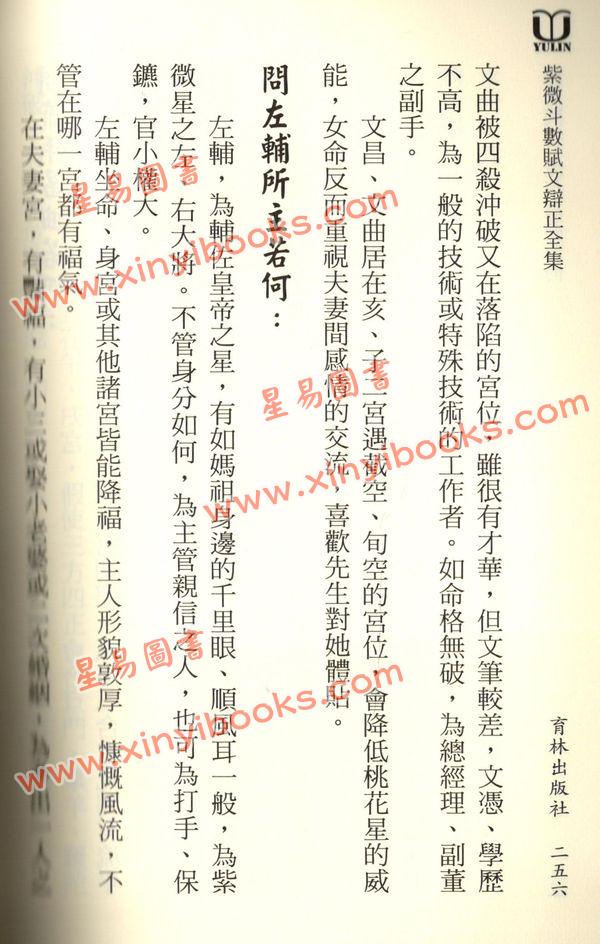 YULIN
紫微斗數賦文辯正全集
育林出版社 二五六
文曲被四殺沖破又在落陷的宮位，雖很有才華，但文筆較差，文憑、學歷
不高，為一般的技術或特殊技術的工作者。如命格無破，為總經理、副董
之副手。
文昌、文曲居在亥、子二宮遇截空、旬空的宮位，會降低桃花星的威
能，女命反而重視夫妻間感情的交流，喜歡先生對她體貼。
問左輔所主若何：
左輔，為輔佐皇帝之星，有如媽祖身邊的千里眼、順風耳一般，為紫
微星之左、右大將。不管身分如何，為主管親信之人，也可為打手、保
鑣，官小權大。
左輔坐命、身宮或其他諸宮皆能降福，主人形貌敦厚，慷慨風流，不
管在哪一宮都有福氣。
在夫妻宮，有豔福，有小三或娶小老婆或二次婚姻，為
星易圖書
www.xinyibooks.com
星易圖書
www.xinyibooks.com
星易圖書
www.xinyibooks.com